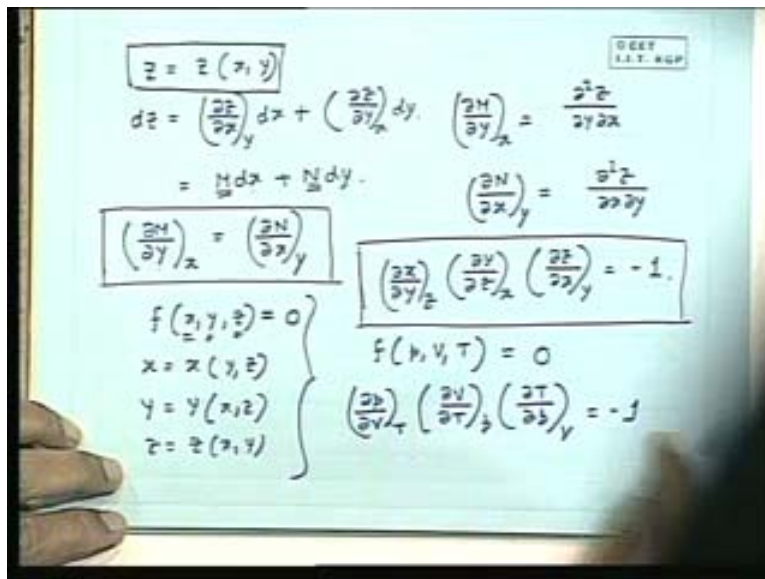 z = z (x, y)
C CET
I.I.T. KGP
dz = (∂z/∂x)_y dx + (∂z/∂y)_x dy.
(∂M/∂y)_x = ∂²z/∂y∂x
= M dx + N dy.
(∂N/∂x)_y = ∂²z/∂x∂y
(∂M/∂y)_x = (∂N/∂x)_y
(∂x/∂y)_z (∂y/∂z)_x (∂z/∂x)_y = -1.
f (x, y, z) = 0
x = x (y, z)
y = y (x, z)
z = z (x, y)
f (p, V, T) = 0
(∂p/∂V)_T (∂V/∂T)_p (∂T/∂p)_V = -1